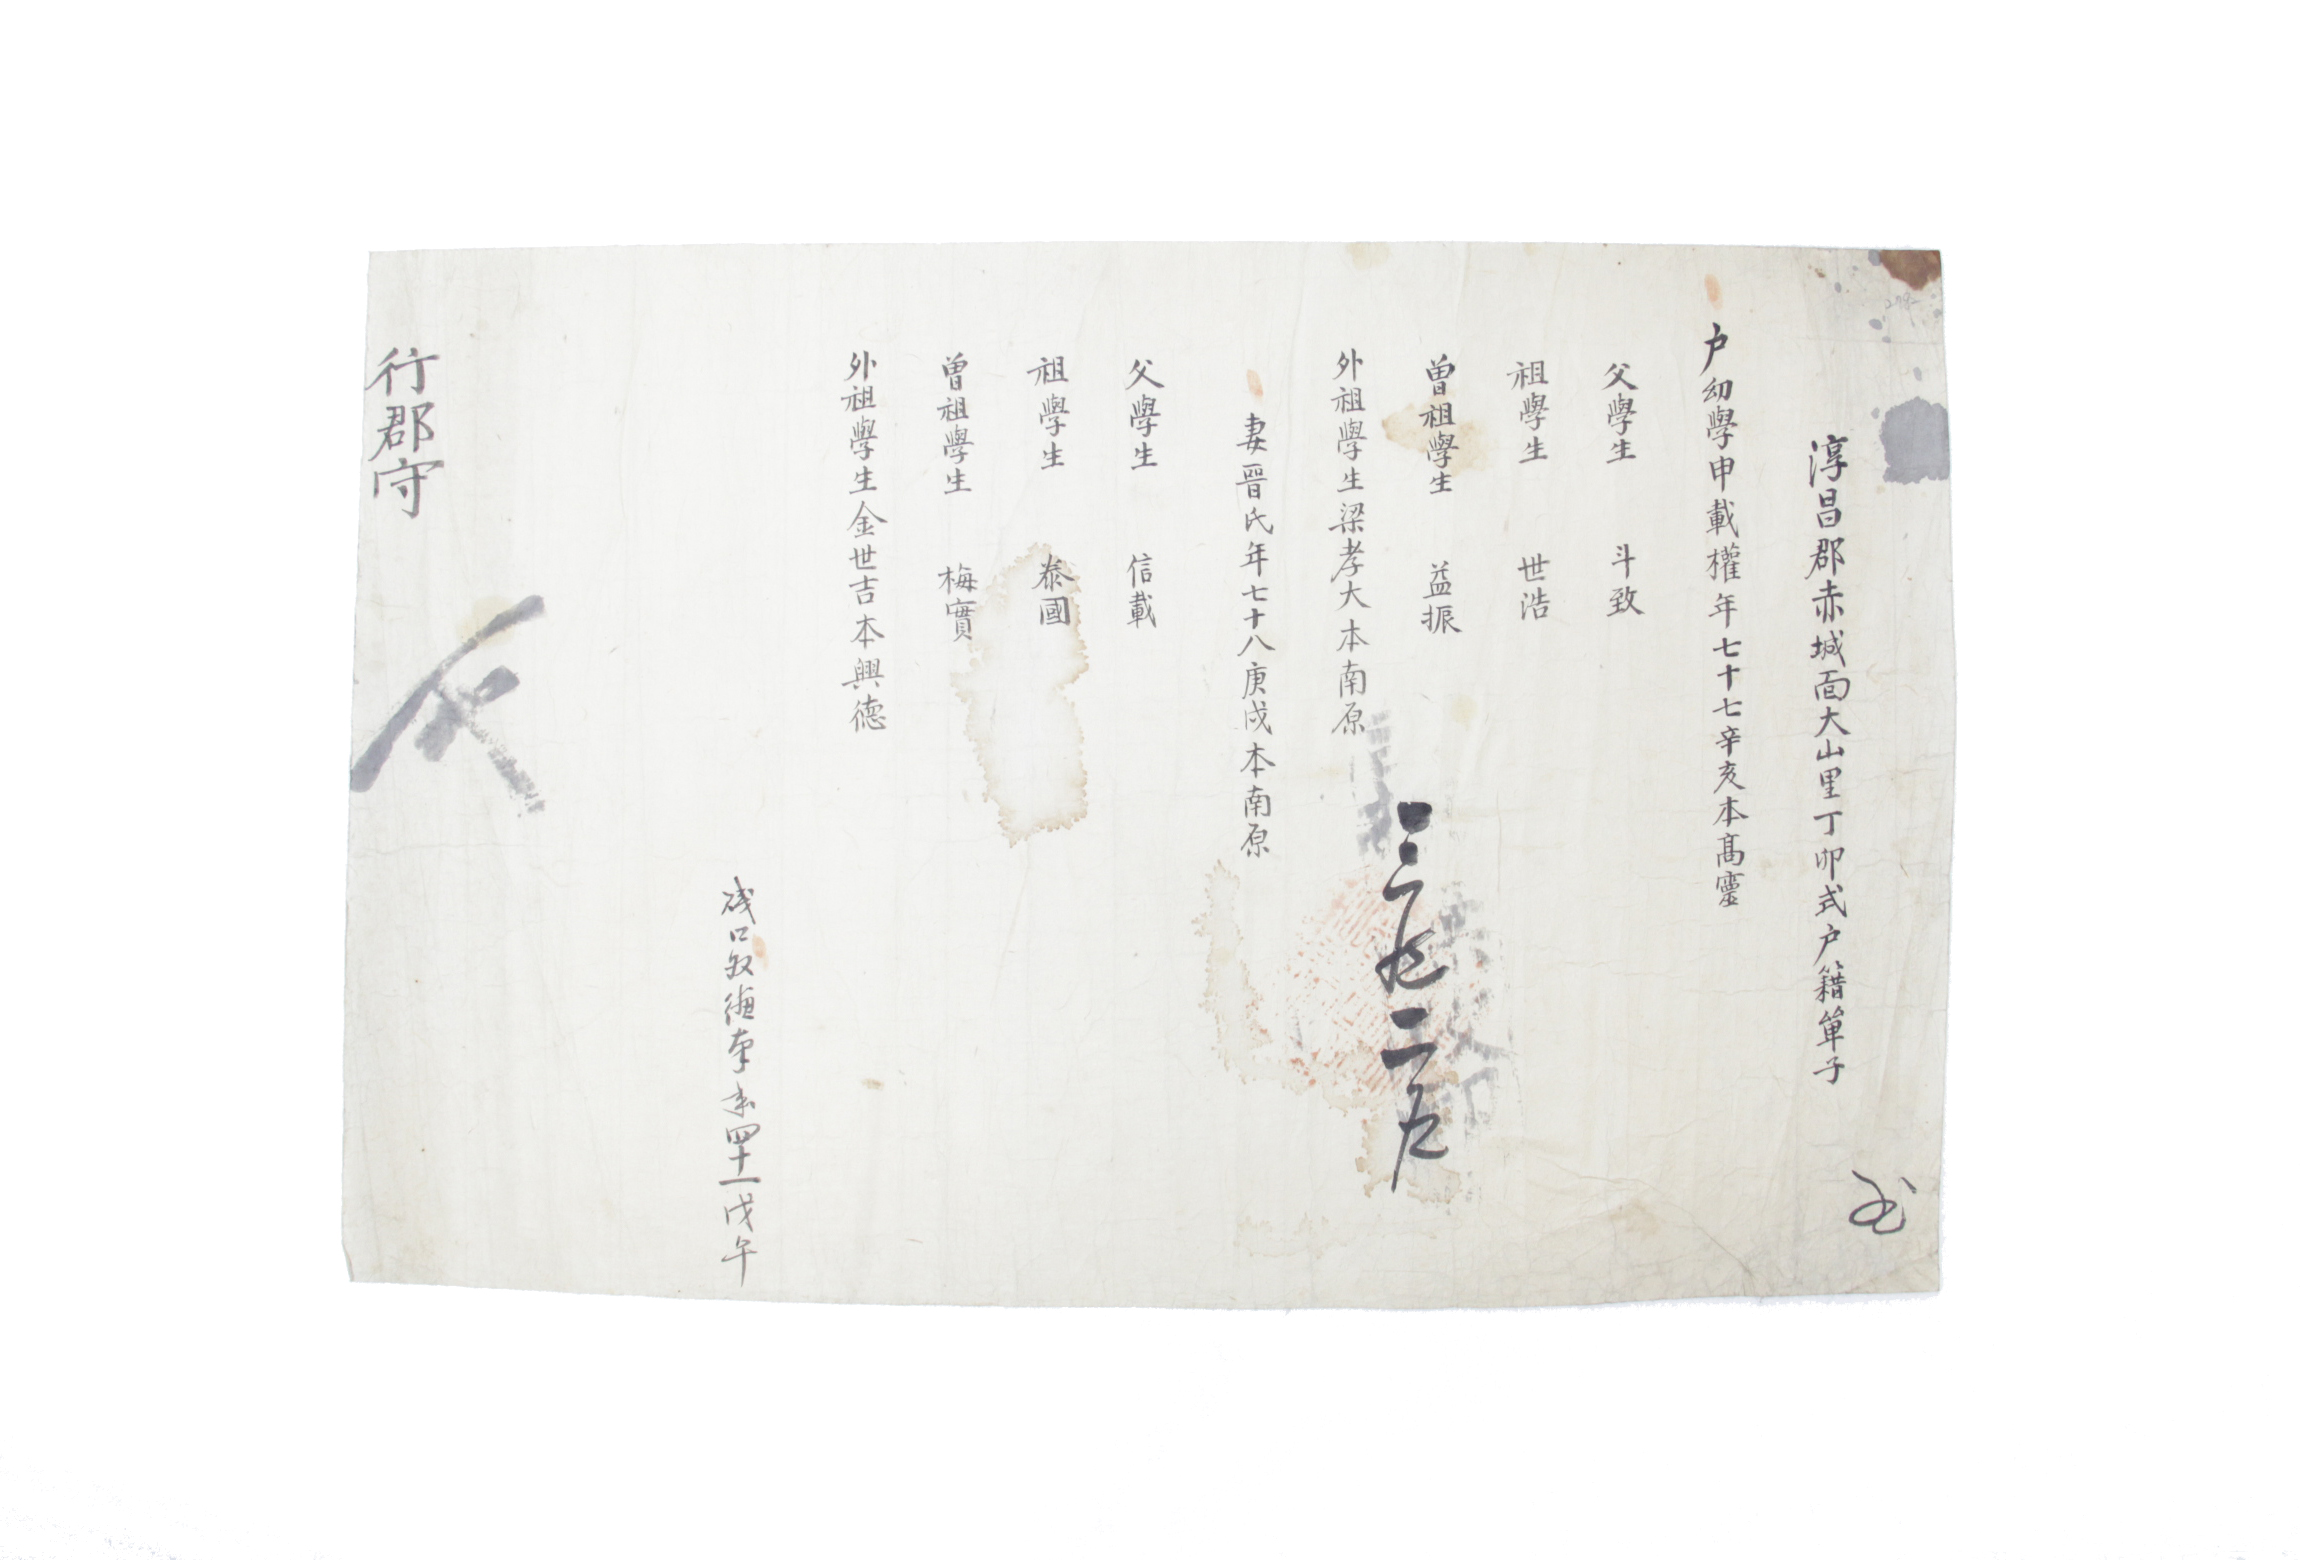 淳昌郡赤城面大山里丁卯式户籍單子
户幼學申載權年七十七辛亥本高靈
父學生 斗致
祖學生 世浩
曾祖學生 益振
外祖學生梁孝大本南原
妻晉氏年七十八庚戌本南原
父學生 信載
祖學生 泰國
曾祖學生 梅實
外祖學生金世吉本興德
四十一戊午
行郡守